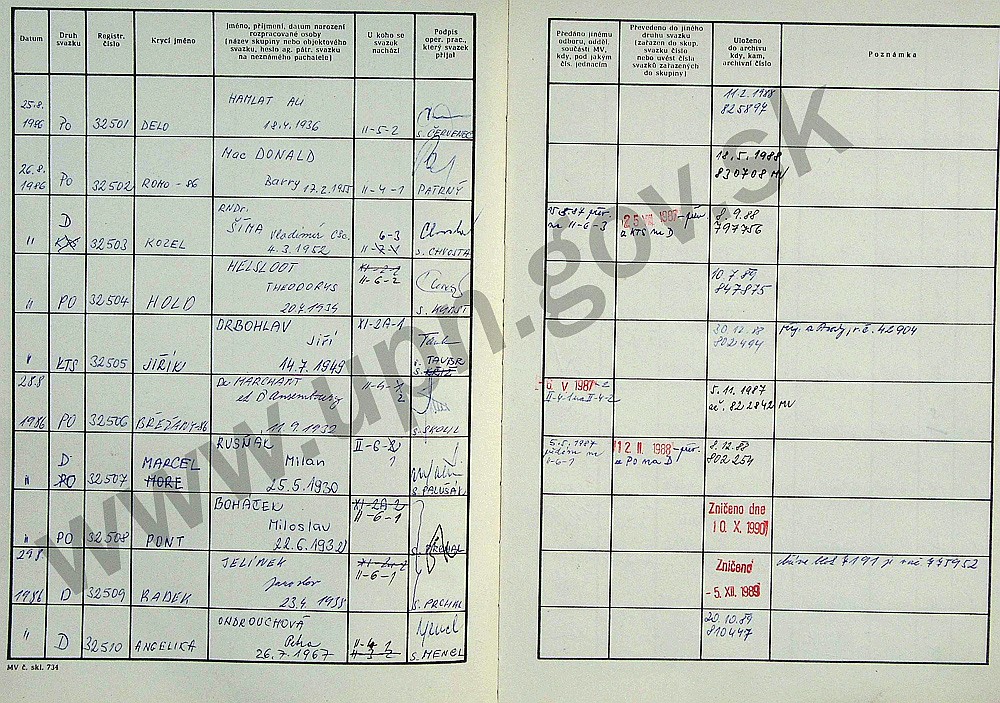 Datum
Druh svazku
Registr. číslo
Krycí jméno
Jméno, příjmení, datum narození
rozpracované osoby
(název skupiny nebo objektového
svazku, heslo ag. pátr. svazku
na neznámého pachatele)
U koho se
svazek
nachází
Podpis
oper. prac.,
který svazek
přijal
Předáno jinému
odboru, odděl.
součásti MV,
kdy, pod jakým
čís. jednacím
Převedeno do jiného
druhu svazku
(zařazen do skup.
svazku číslo
nebo uvést čísla
svazků zařazených
do skupiny)
Uloženo
do archivu
kdy, kam,
archivní číslo
Poznámka
25.8. HAMLAT ALI 11.2.1988
825897
1986 PO 32501 DELO 18.4.1936 II-5-2 S. ČERVENEC
26.8. Mac DONALD 18.5.1988
1986 PO 32502 ROKO-86 Barry 17.2.1955 II-4-1 PATRNÝ 830708 MV
RNDr.
D ŠÍMA Vladimír CSc. 6-3 25 VIII. 1987 - přev. 8.9.88
II-6-3 z KTS na D 797756
" KTS 32503 KOZEL 4.3.1952 S. CHVOSTA
HELSLOOT XI-2-2 10.7.89
THEODORUS II-6-2 847875
" PO 32504 HOLD 20.4.1934
DRBOHLAV XI-2A-1 30.12.88
Jiří 802494 42904
" KTS 32505 JIŘÍK 14.7.1949 TAUBR
S. KŘÍŽ
28.8 De MARCHANT II-6-2 -6. V 1987 5.11.1987
et D'Ansembourg II-4-1 na II-4-2 ač. 822842 MV
1986 PO 32506 BŘEŽANY-86 11.9.1932
RUSŇÁK II-6-2 5.5.1987 12. II. 1988 - přev. 8.12.88
D MARCEL Milan 1 II-6-1 z PO na D 802254
" PO 32507 MORE 25.5.1930 S. PALUSÁK
BOHÁČEK XI-2A-2 Zničeno dne
Miloslav II-6-1 10. X. 1990
" PO 32508 PONT 22.6.1932 S. PRCHAL
29.8 JELÍNEK XI-2-2 Zničeno
Jaroslav II-6-1 -5. XII. 1989
1986 D 32509 RADEK 23.4.1938 S. PRCHAL
ONDROUCHOVÁ 20.10.89
Petra II-4-1 810447
" D 32510 ANGELIKA 26.7.1967 II-3-2 S. MENCL
MV č. skl. 734
www.upn.gov.sk